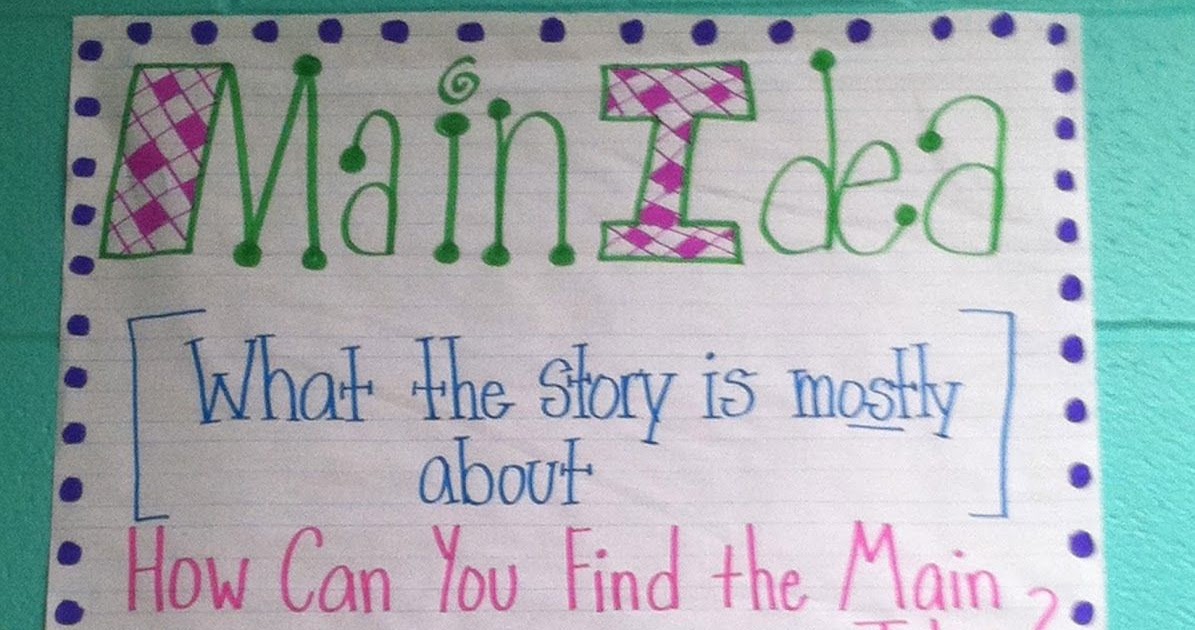 Main Idea
What the story is mostly
about
How Can You Find the Main
?